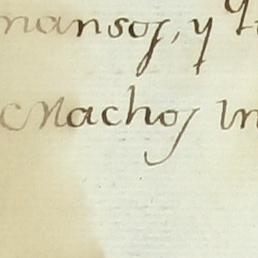 mansos, y
Machos